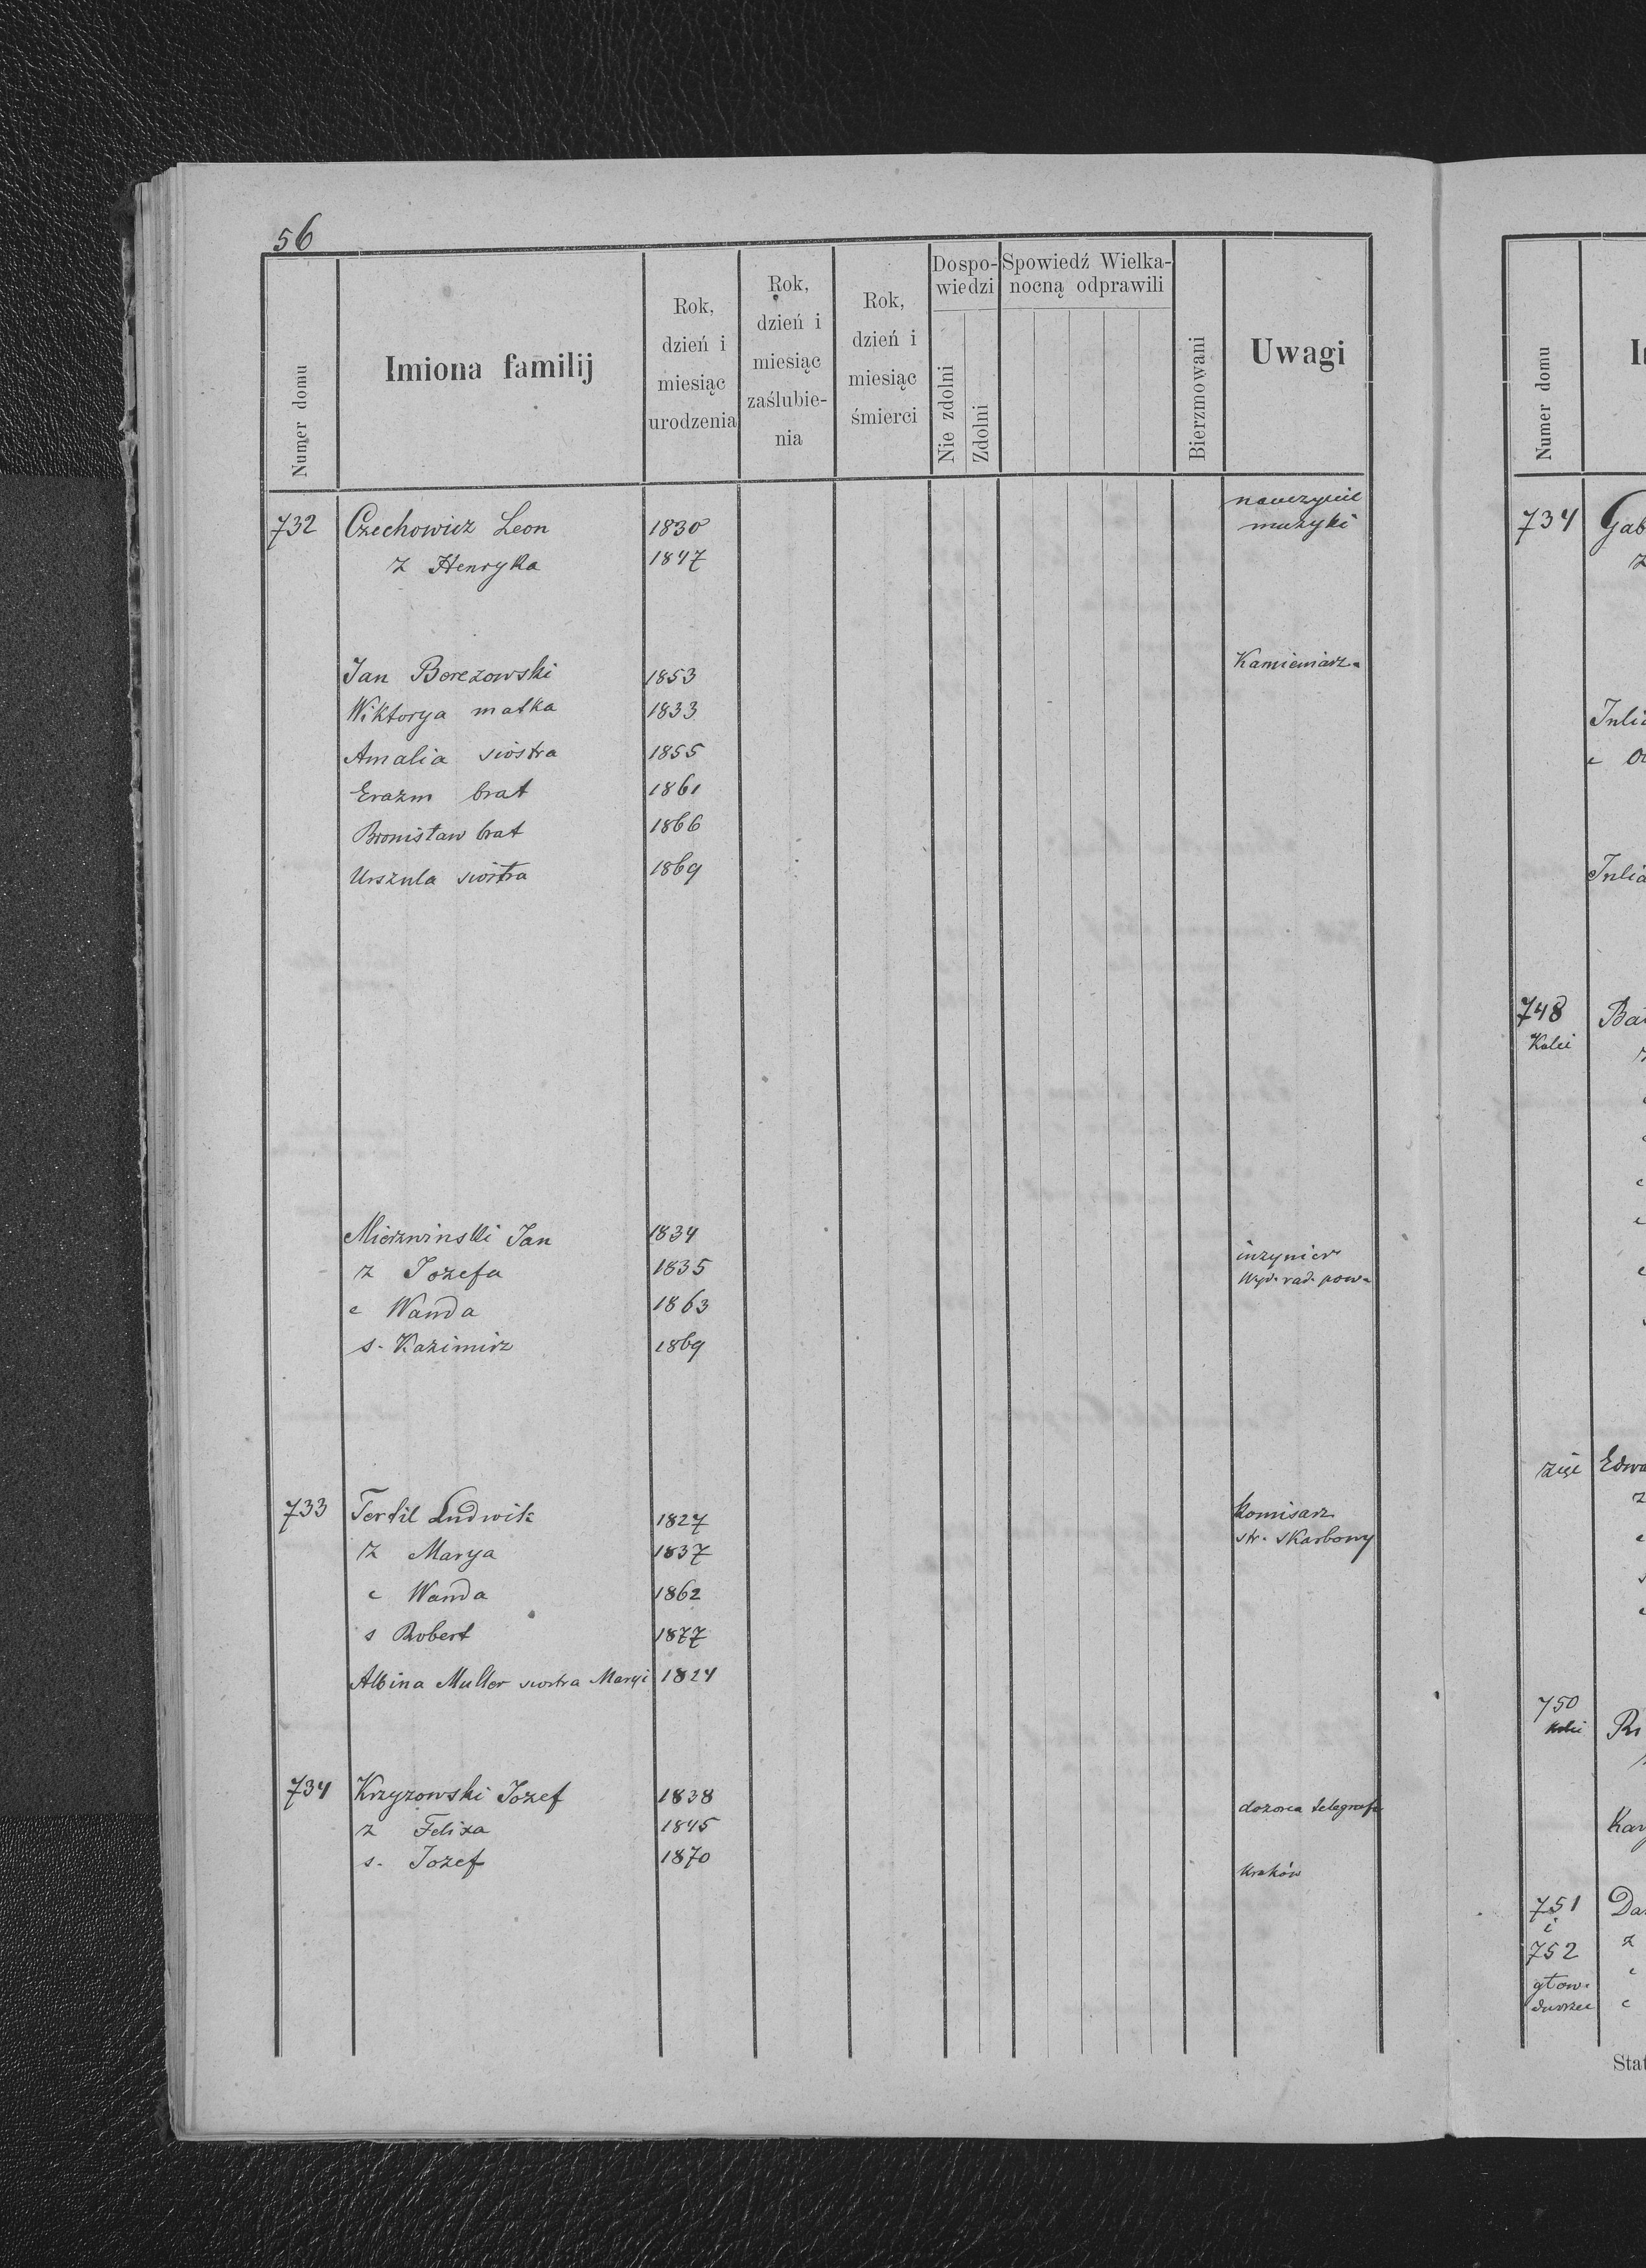 56
Numer domu
Imiona familij
Rok, dzień i miesiąc urodzenia
Rok, dzień i miesiąc zaślubie-nia
Rok, dzień i miesiąc śmierci
Dospo-wiedzi
Nie zdolni
Zdolni
Spowiedź Wielka-nocną odprawili
Bierzmowani
Uwagi
nauczyciel
732 Czechowicz Leon 1830 muzyki
z Henryka 1847
Jan Berezowski 1853 Kamieniarz
Wiktorya matka 1833
Amalia siostra 1855
Erazm brat 1861
Bronisław brat 1866
Urszula siostra 1869
Mierzwinski Jan 1834
z Jozefa 1835 inzynier
Wyd. rad. pow.
c Wanda 1863
s. Kazimirz 1869
733 Tertil Ludwik 1827 Komisarz
z Marya 1837 str. skarbowy
c Wanda 1862
s Robert 1877
Albina Muller siostra Maryi 1824
734 Krzyzowski Jozef 1838 dozorca telegraf
z Felixa 1845
s. Jozef 1870 Kraków
Numer domu
I
734 Gab
z
Juli
c
Julia
748 Ba
Kolei
c
c
Edwa
z
750
Kolei
Kar
751 Da
i
752 z
głow. c
dworzec c
Stat